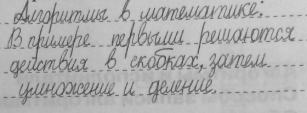 Алгоритмы в математике:
В примере первыми решаются
действия в скобках, затем
умножение и деление.